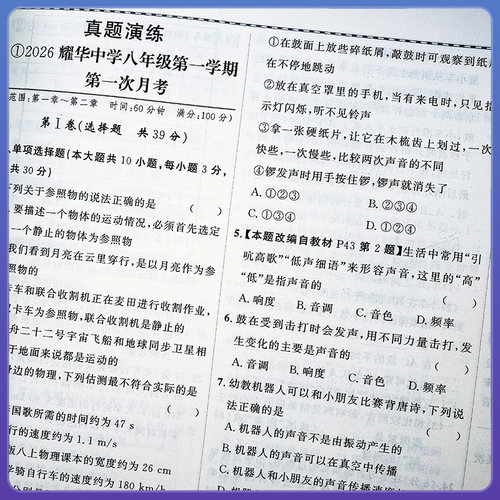 真题演练
①2026 耀华中学八年级第一学期
第一次月考
范围:第一章~第二章 时间:60分钟 满分:100分)
第Ⅰ卷(选择题 共39分)
单项选择题(本大题共10小题,每小题3分,
共30分)
下列关于参照物的说法正确的是 ( )
要描述一个物体的运动情况,必须首先选定
一个静止的物体为参照物
我们看到月亮在云里穿行,是以月亮作为参
照物的
卡车和联合收割机正在麦田进行收割作业,
以卡车为参照物,联合收割机是静止的
舟二十二号宇宙飞船和地球同步卫星相
于地面来说都是运动的
身边的物理,下列估测最不符合实际的是
( )
国歌所需的时间约为47 s
行的速度约为1.1 m/s
版八上物理课本的宽度约为26 cm
学骑自行车的速度约为180 km/h
①在鼓面上放些碎纸屑,敲鼓时可观察到纸屑
在不停地跳动
②放在真空罩里的手机,当有来电时,只见指
示灯闪烁,听不见铃声
③拿一张硬纸片,让它在木梳齿上划过,一次
快些,一次慢些,比较两次声音的不同
④锣发声时用手按住锣,锣声就消失了
A.①②③ B.②③④
C.①③④ D.①②④
5.【本题改编自教材P43第2题】生活中常用“引
吭高歌”“低声细语”来形容声音,这里的“高”
“低”是指声音的 ( )
A.响度 B.音调 C.音色 D.频率
6.鼓在受到击打时会发声,用不同力量击打,发
生变化的主要是声音的 ( )
A.音调 B.响度 C.音色 D.频率
7.幼教机器人可以和小朋友比赛背唐诗,下列说
法正确的是 ( )
A.机器人的声音不是由振动产生的
B.机器人的声音可以在真空中传播
C.机器人和小朋友的声音传播速度